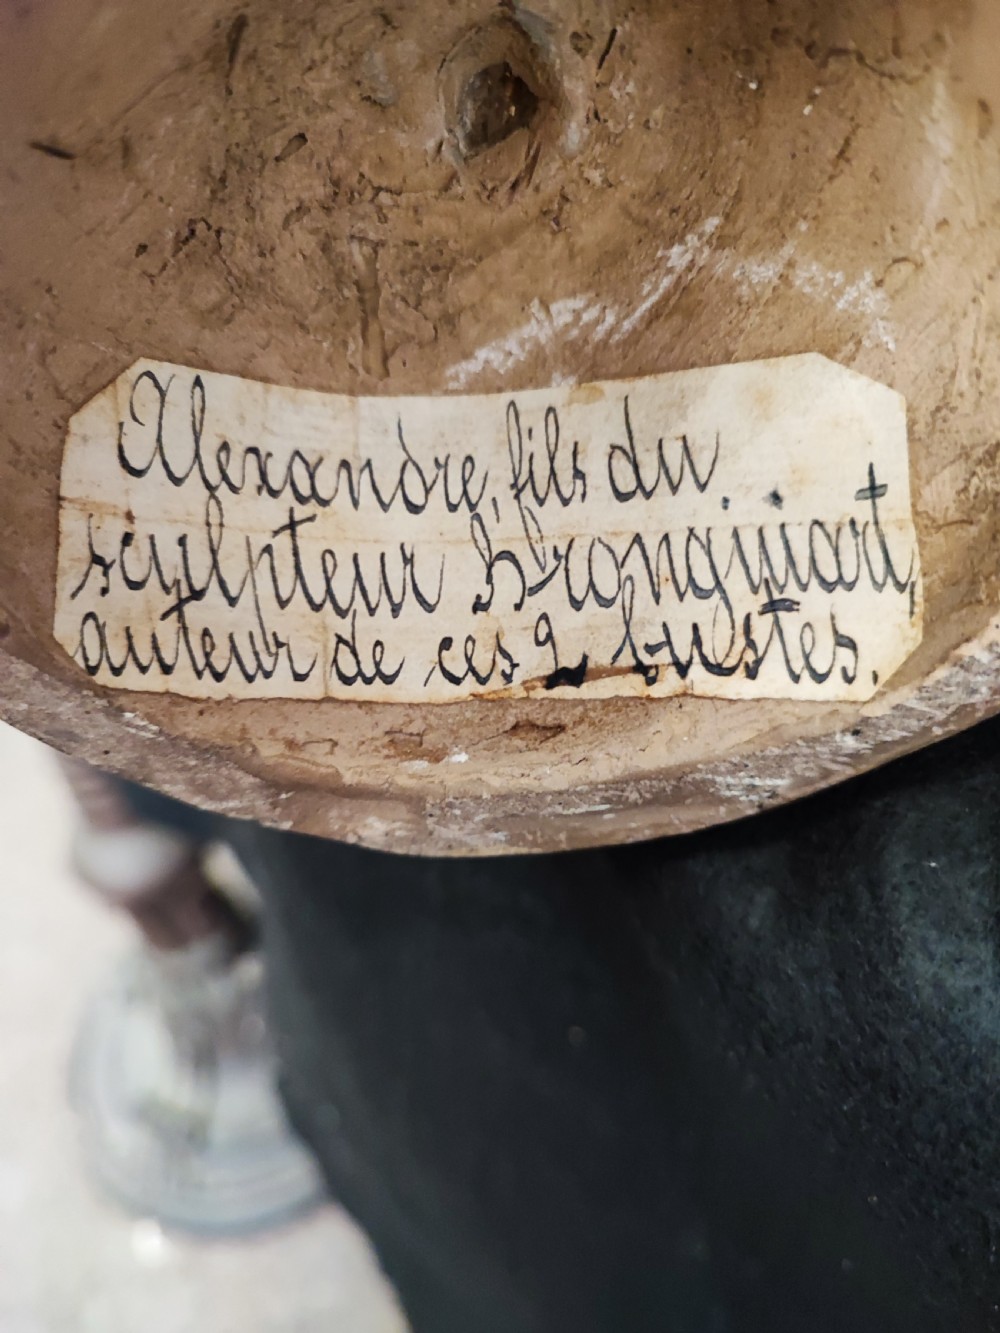 Alexandre, fils du
sculpteur Brongniart,
auteur de ces 2 bustes.